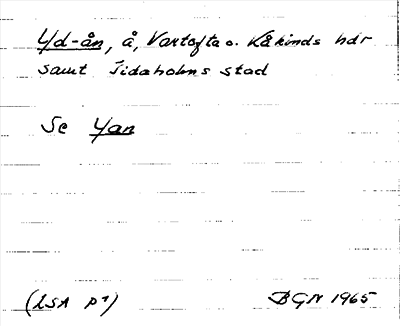 Yd-ån, å, Vartofta o. Kåkinds hdr
samt Tidaholms stad
Se Yan
(LSA p¹) BGN 1965